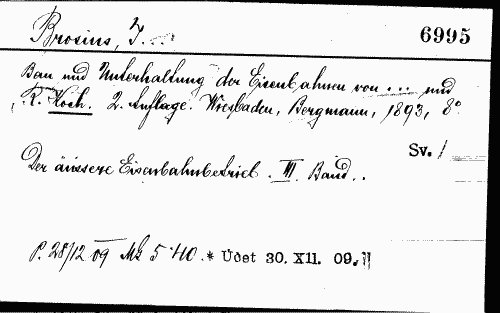 Brosius, J... 6995
Bau und Unterhaltung der Eisenbahnen von ... und
R. Koch. 2. Auflage. Wiesbaden, Bergmann, 1893, 8°.
Sv. /
Der äussere Eisenbahnbetrieb. III. Band..
P. 28/12 09 Mk 5·40.* Udet 30. XII. 09.